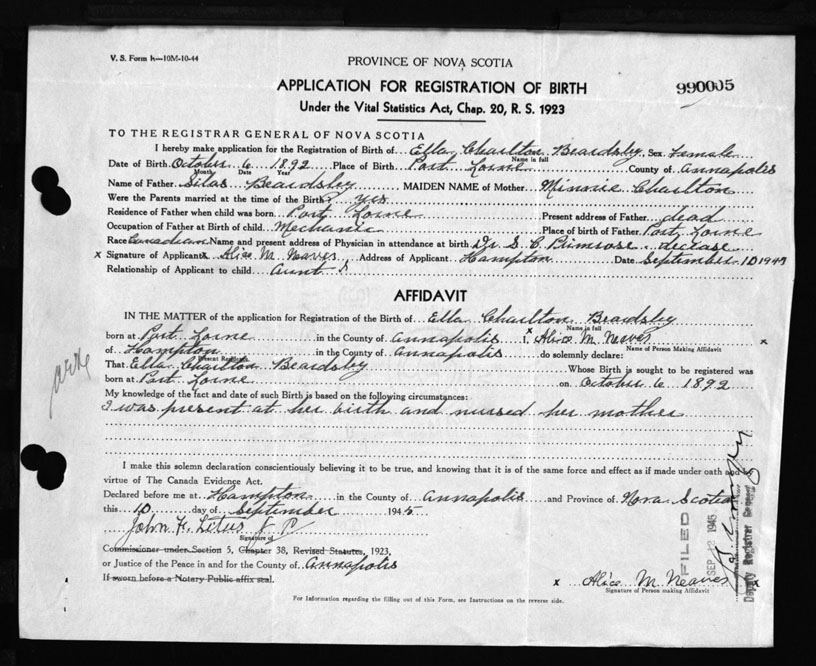 V. S. Form h—10M-10-44
PROVINCE OF NOVA SCOTIA
APPLICATION FOR REGISTRATION OF BIRTH
990005
Under the Vital Statistics Act, Chap. 20, R. S. 1923
TO THE REGISTRAR GENERAL OF NOVA SCOTIA
I hereby make application for the Registration of Birth of Ella Charlton Beardsley Sex Female
Name in full
Date of Birth October 6 1892 Place of Birth Port Lorne County of Annapolis
Month Date Year
Name of Father Silas Beardsley MAIDEN NAME of Mother Minnie Charlton
Were the Parents married at the time of the Birth? yes
Residence of Father when child was born Port Lorne Present address of Father dead
Occupation of Father at Birth of child Mechanic Place of birth of Father Port Lorne
Race Canadian Name and present address of Physician in attendance at birth Dr. S. C. Primrose decease
x Signature of Applicant x Alice M. Neaves Address of Applicant Hampton Date September 10 1945
Relationship of Applicant to child Aunt
AFFIDAVIT
IN THE MATTER of the application for Registration of the Birth of Ella Charlton Beardsley
Name in full
born at Port Lorne in the County of Annapolis I, x Alice M. Neaves x
of Hampton in the County of Annapolis do solemnly declare:
Present Residence
Name of Person Making Affidavit
That Ella Charlton Beardsley Whose Birth is sought to be registered was
born at Port Lorne on October 6 1892
My knowledge of the fact and date of such Birth is based on the following circumstances:
I was present at her birth and nursed her mother
I make this solemn declaration conscientiously believing it to be true, and knowing that it is of the same force and effect as if made under oath and by
virtue of The Canada Evidence Act.
Declared before me at Hampton in the County of Annapolis and Province of Nova Scotia
this 10 day of September 1945
John F. Titus J P
Signature of
Commissioner under Section 5, Chapter 38, Revised Statutes, 1923,
or Justice of the Peace in and for the County of Annapolis
If sworn before a Notary Public affix seal.
x Alice M. Neaves x
Signature of Person making Affidavit
For Information regarding the filling out of this Form, see Instructions on the reverse side.
FILED
SEP 12 1945
Deputy Registrar General